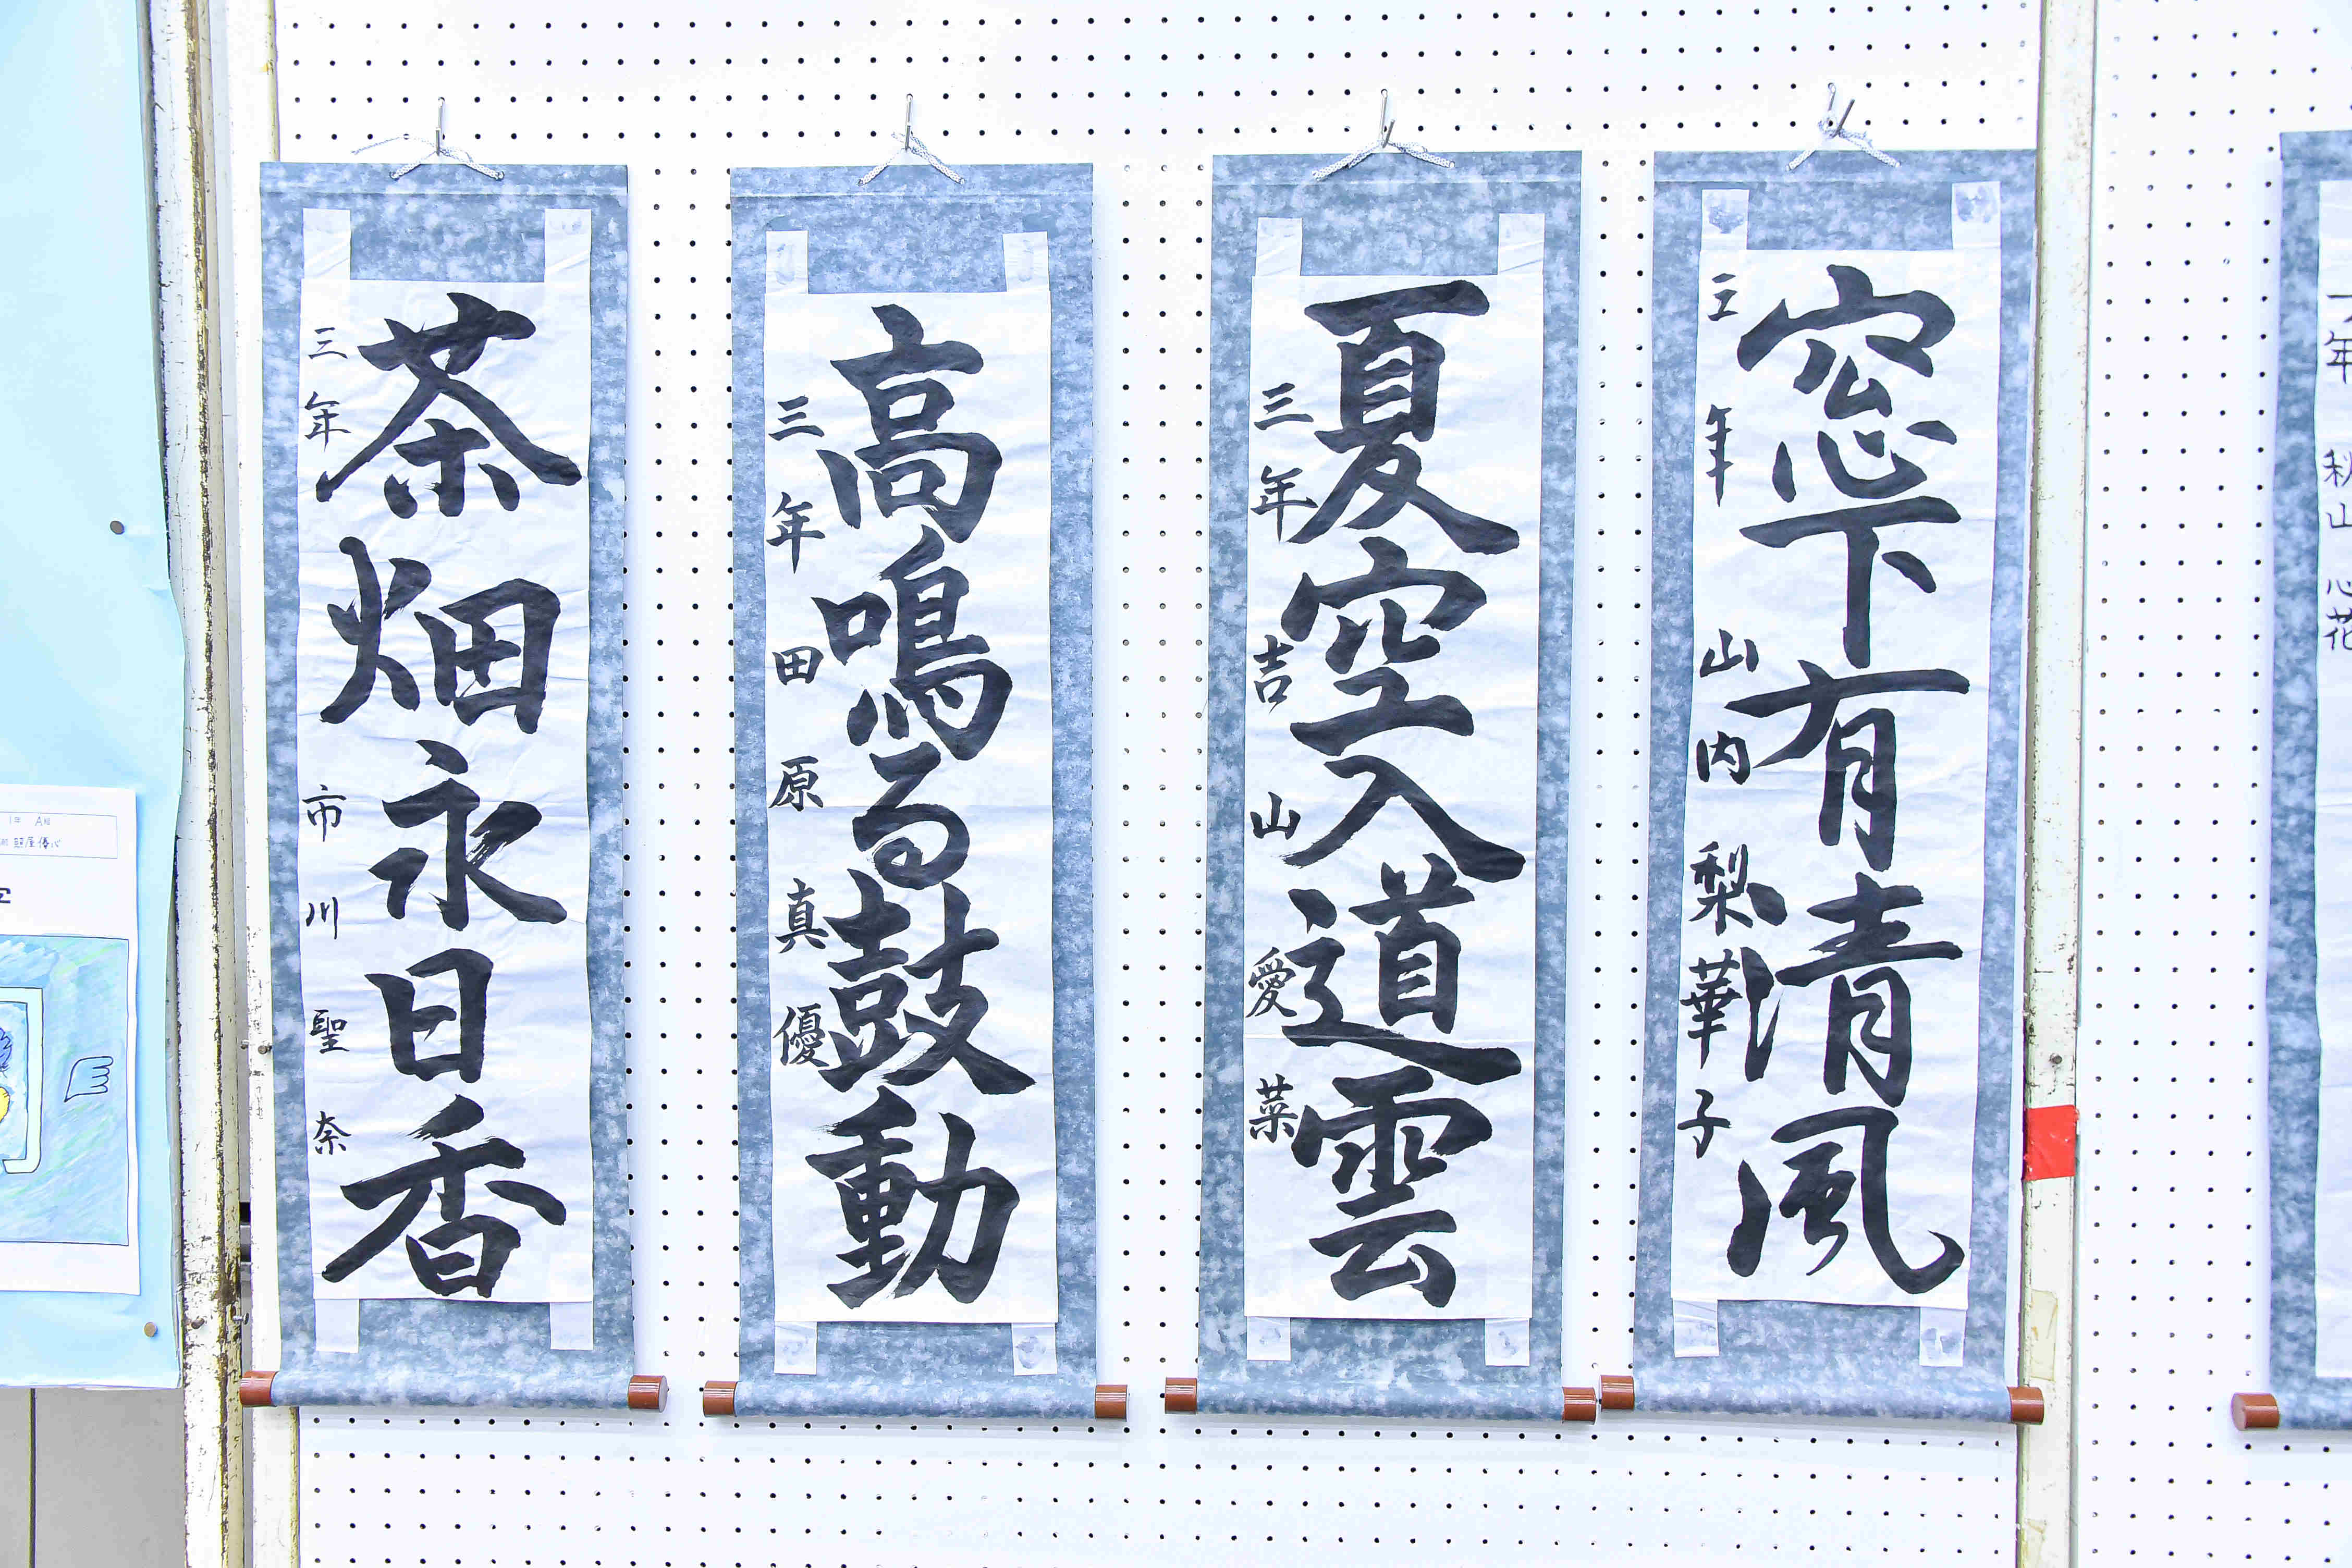 窓下有清風
三年 山内梨華子
夏空入道雲
三年 吉山愛菜
高鳴る鼓動
三年 田原真優
茶畑永日香
三年 市川聖奈
年 秋山 心花
1年 A組
照屋優心